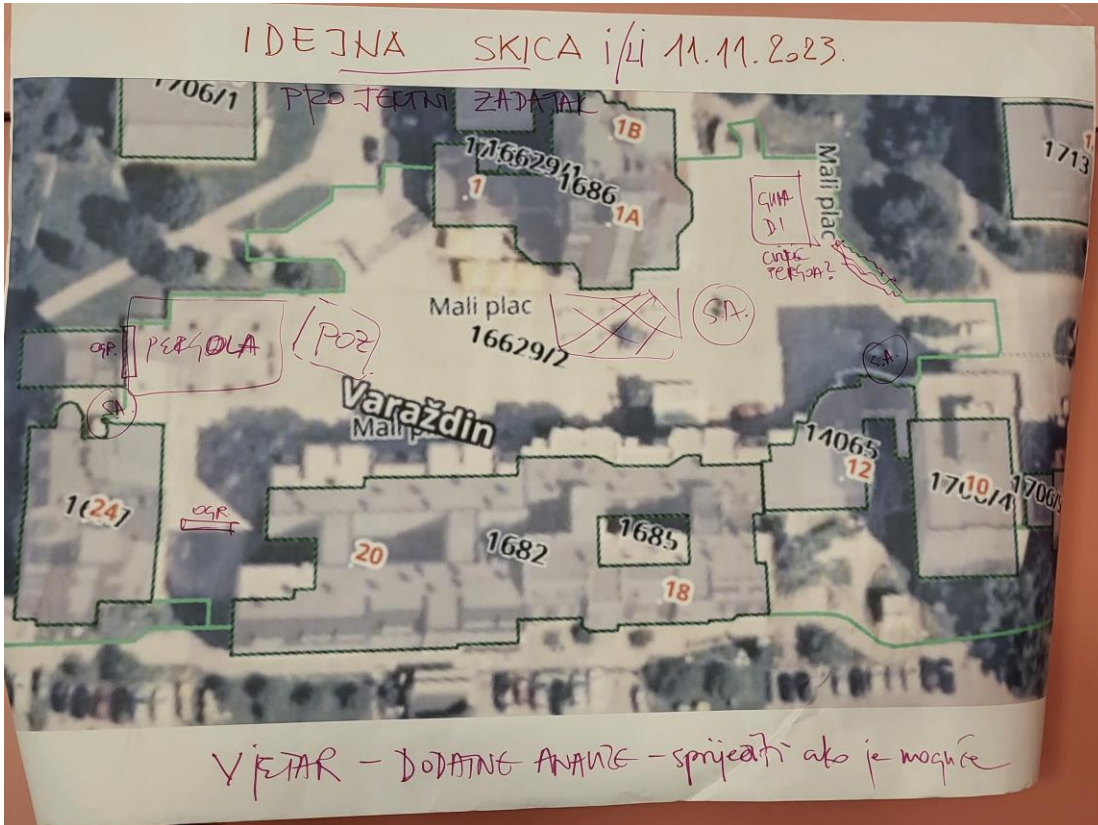 IDEJNA SKICA i/ili 11.11.2023.
PROJEKTNI ZADATAK
1706/1
1B
16629/1
1686
1
1A
1713
Mali plac
GUMA
DI
PERGOLA?
Mali plac
16629/2
S.A.
OGR.
PERGOLA
POZ
S.A.
SA
Varaždin
Mali
14065
12
10
24
OGR.
20
1682
1685
18
VJETAR - DODATNE ANALIZE - spriječiti ako je moguće